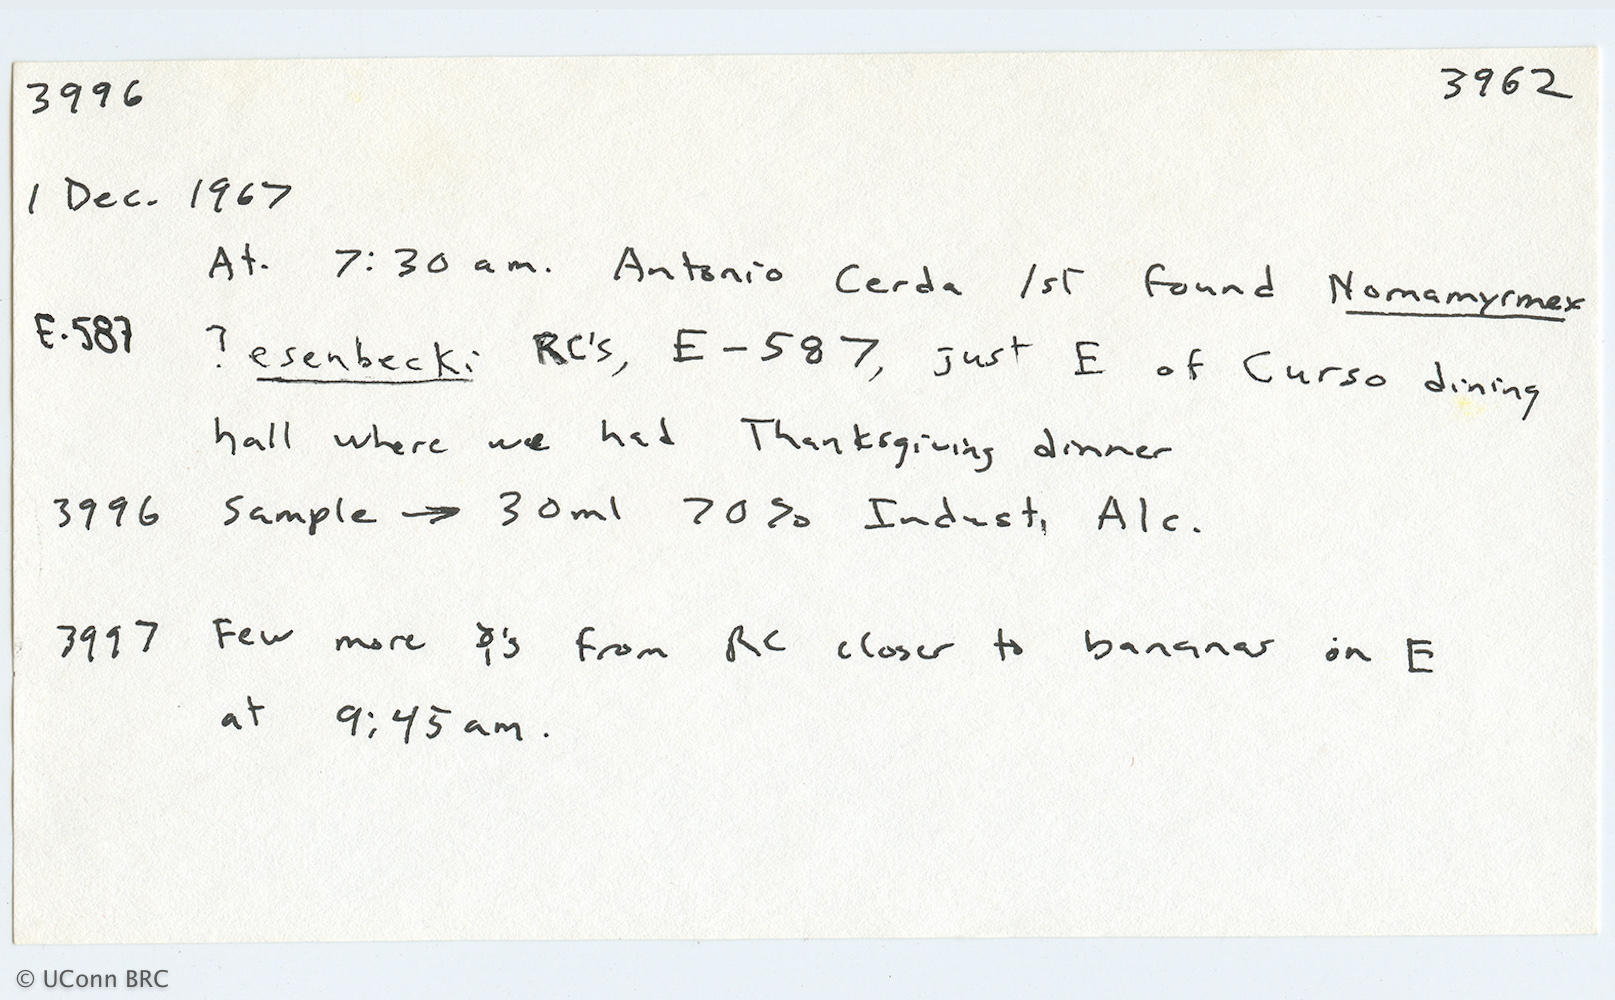 3996 3962
1 Dec. 1967
At. 7:30 am. Antonio Cerda 1st found Nomamyrmex
E-587 ? esenbecki RC's, E-587, just E of Curso dining
hall where we had Thanksgiving dinner
3996 Sample → 30ml 70% Indust. Alc.
3997 Few more ☿'s from RC closer to bananas on E
at 9:45 am.
© UConn BRC